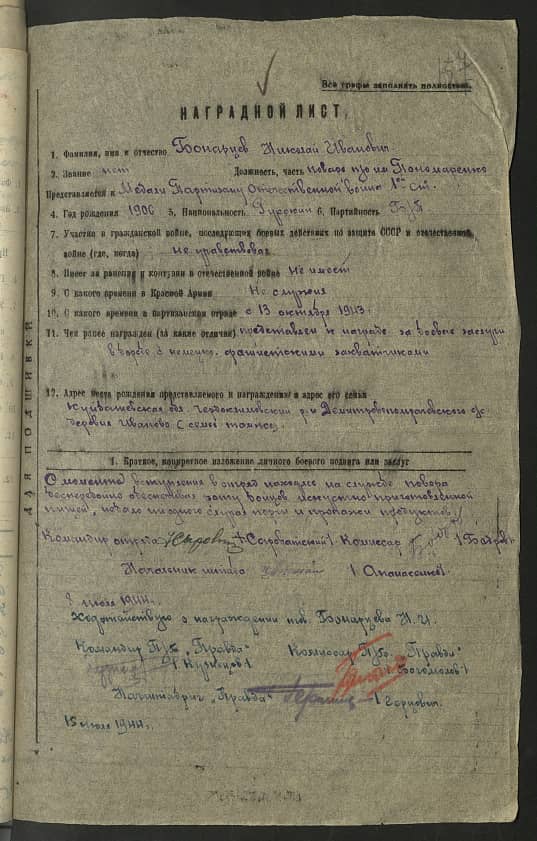 Все графы заполнять полностью.
НАГРАДНОЙ ЛИСТ
1. Фамилия, имя и отчество Бонарцев Николай Иванович
2. Звание нет Должность, часть повар п/о им Пономаренко
Представляется к Медали Партизану Отечественной войны 1ой ст.
4. Год рождения 1906 5. Национальность Русский 6. Партийность Б/П
7. Участие в гражданской войне, последующих боевых действиях по защите СССР и отечественной
войне (где, когда) не участвовал
8. Имеет ли ранения и контузии в отечественной войне Не имеет
9. С какого времени в Красной Армии Не служил
10. С какого времени в партизанском отряде с 13 октября 1943
11. Чем ранее награжден (за какие отличия) представлен к награде за боевые заслуги
в борьбе с немецко фашистскими захватчиками
12. Адрес места рождения представляемого к награждению и адрес его семьи
Куйбышевская обл р-н с/с
деревня Иваново (семья
ДЛЯ ПОДШИВКИ
1. Краткое, конкретное изложение личного боевого подвига или заслуг
С момента вступления в отряд находясь на службе повара
бесперебойно обеспечивал зону бойцов искустно приготовленной
пищей, не было ни одного случая порчи и пропажи продуктов.
Командир отряда Комиссар
Начальник штаба
июля 1944.
Ходотайствую о награждении тов. Бонарцева Н. И.
Командир П/бр. "Правда" Комиссар П/бр. "Правда"
/ Кузнецов / / Богомолов /
Начштабриг "Правда"
15 июля 1944.